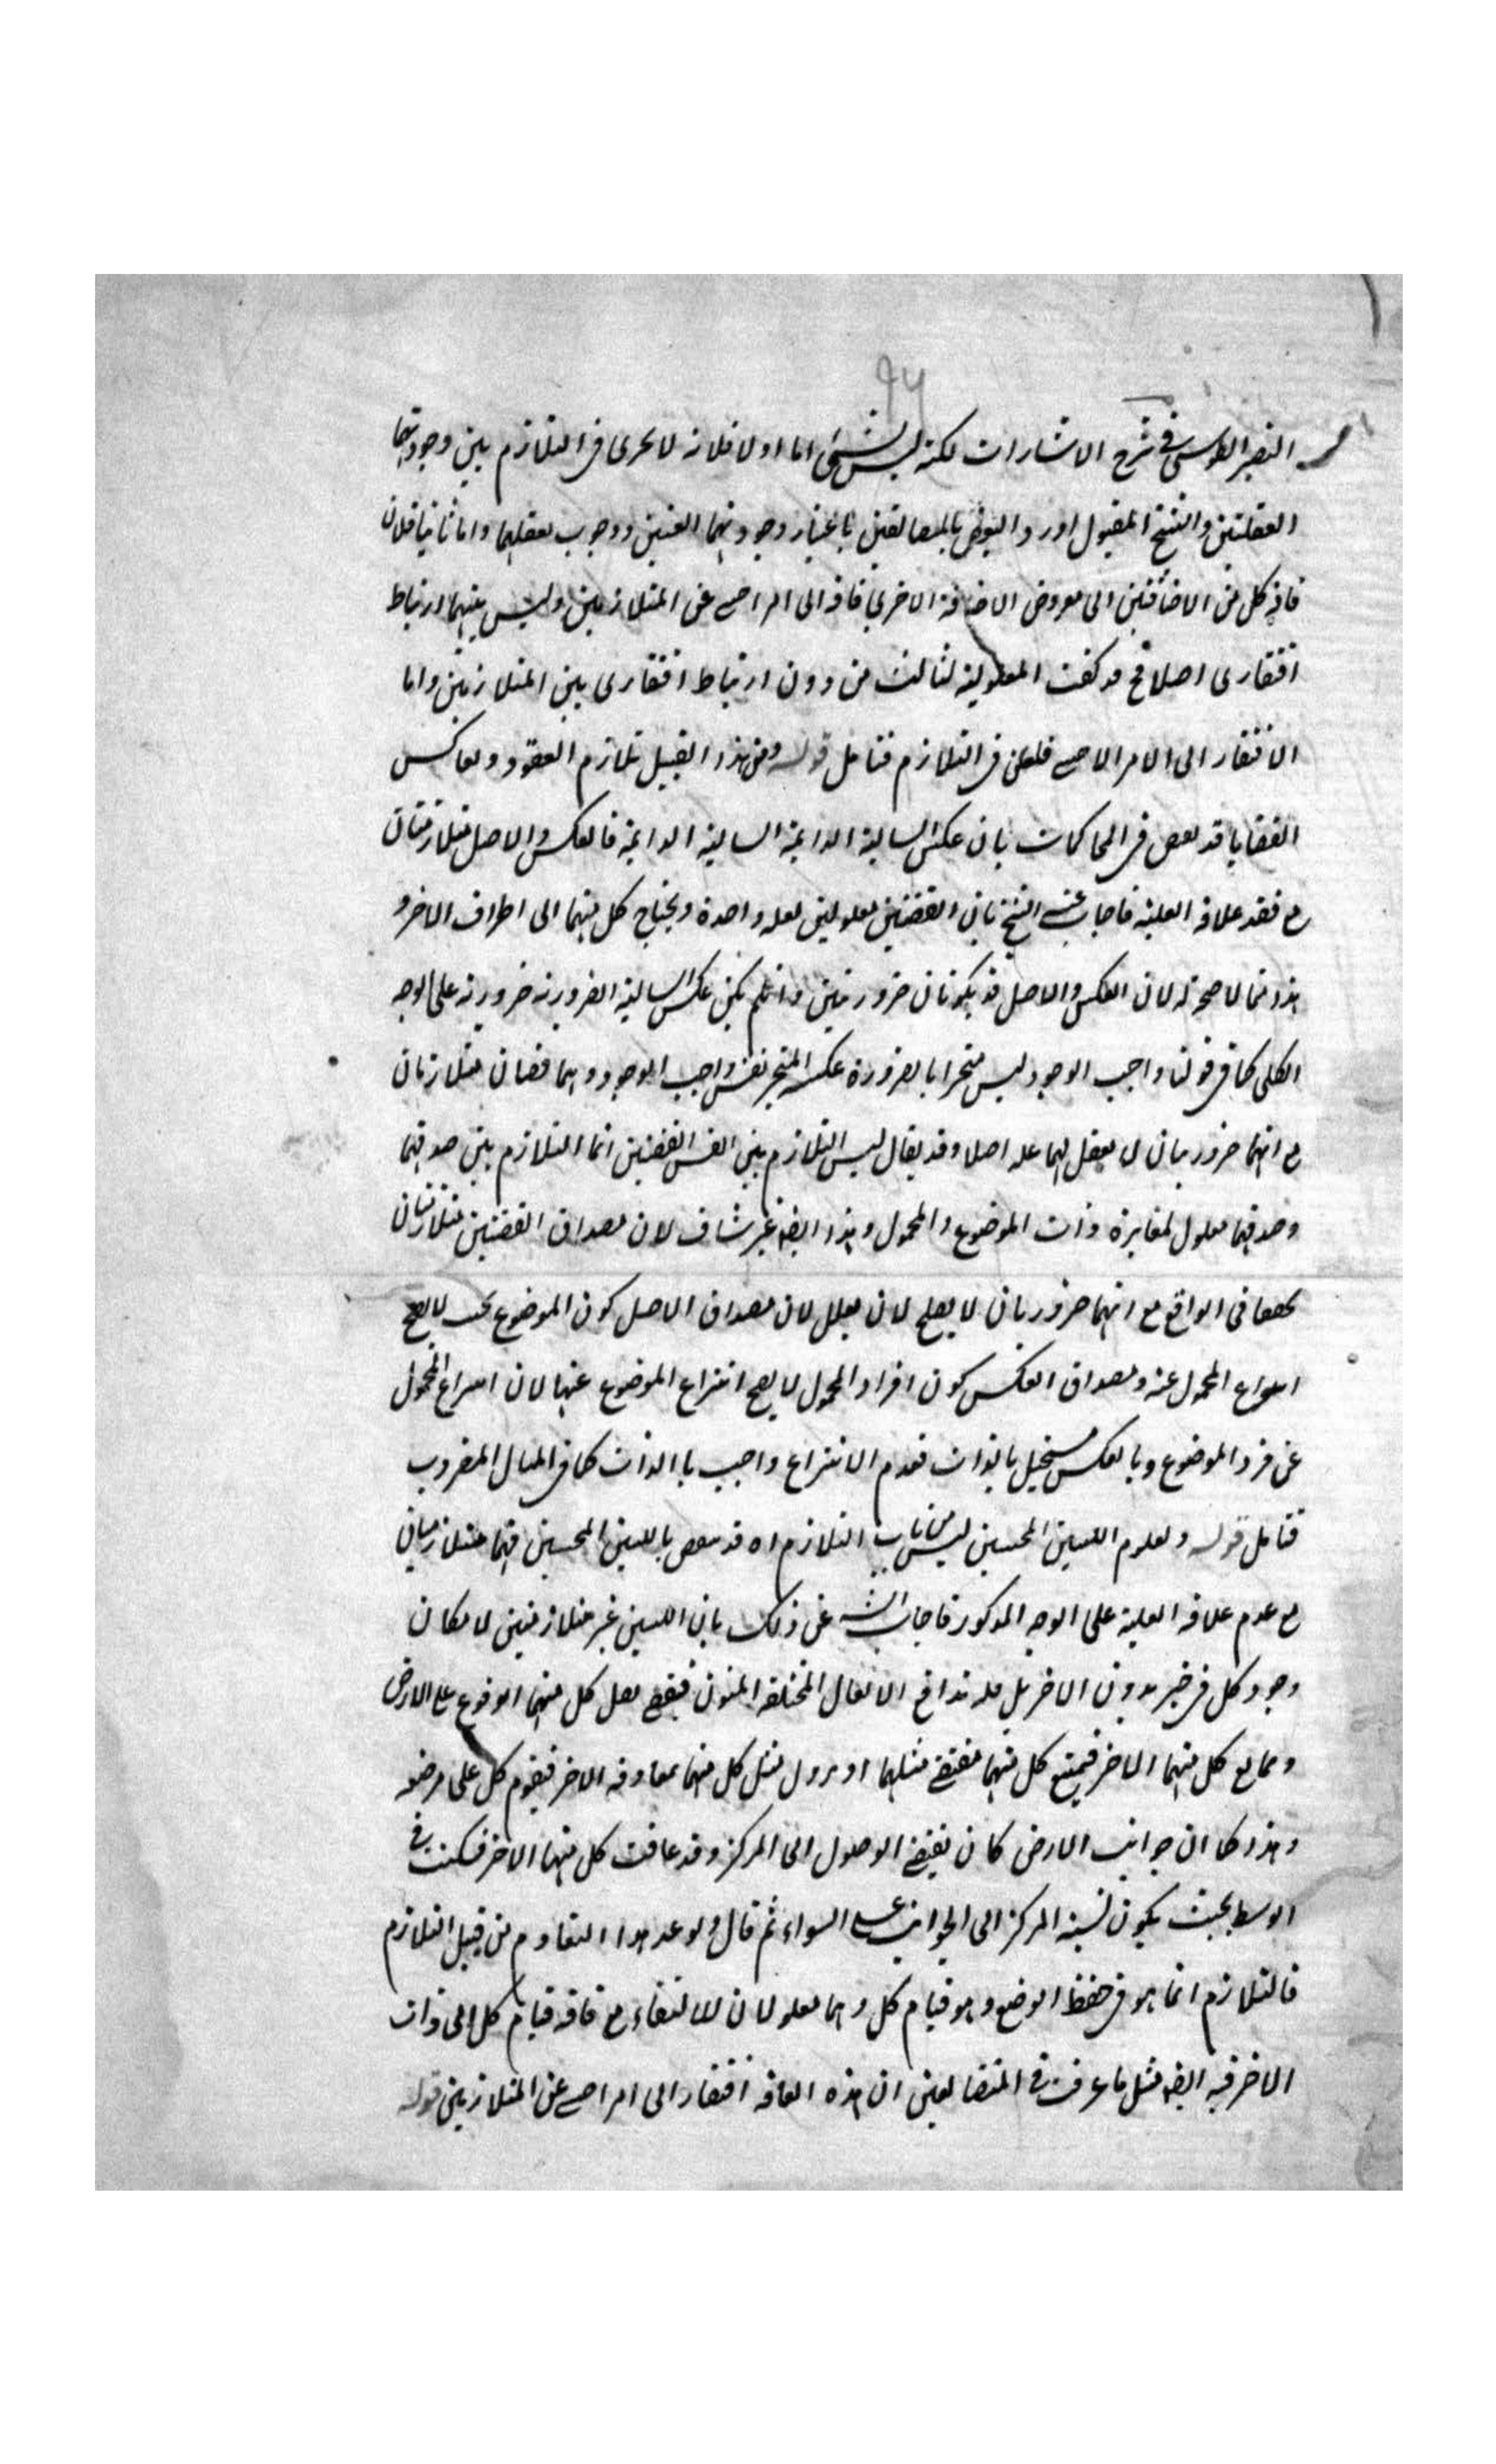 ٩٧
النصير الطوسي في شرح الاشارات لكنه ليس بشئ اما اولا فلانه لا يجرى فى التلازم بين وجوديهما
العقليين والشيخ المقتول اورد النقض بالمتضائفين باعتبار وجوديهما العينيين ووجوب تعقلهما واما ثانيا فلان
فاقة كل من الاضافتين الى معروض الاضافة الاخرى فاقة الى امر اجنبى عن المتلازمين وليس بينهما ارتباط
افتقارى اصلا فح قد كفت المعلولية لثالث من دون ارتباط افتقارى بين المتلازمين واما
الافتقار الى الامر الاجنبى فلغى فى التلازم فتامل قوله ومن هذا القبيل تلازم العقود وتعاكس
القضايا قد نقض فى المحاكمات بان عكس السالبة الدائمة السالبة الدائمة فالعكس والاصل متلازمتان
مع فقد علاقة العلية فاجاب عنه الشيخ بان القضيتين معلولتين لعلة واحدة ويحتاج كل منهما الى اطراف الاخر و
هذا مما لا صحة له لان العكس والاصل قد يكونان ضروريتين وان لم يكن عكس السالبة الضرورية ضرورية على الوجه
الكلى كما فى قولنا واجب الوجود ليس متحيزا بالضرورة عكسه المتحيز نفس واجب الوجود وهما قضيتان متلازمتان
مع انهما ضروريتان لا يعقل لهما علة اصلا وقد يقال ليس التلازم بين نفس القضيتين انما التلازم بين صدقيهما
وصدقهما معلول لمغايرة ذات الموضوع والمحمول وهذا ايضا غير شاف لان مصداق القضيتين متلازمتان
تحققا فى الواقع مع انهما ضروريان لا يصلح لان يعلل لان مصداق الاصل كون الموضوع بحيث لا يصح
انتزاع المحمول عنه ومصداق العكس كون افراد المحمول لا يصح انتزاع الموضوع عنها لان انتزاع المحمول
عن فرد الموضوع وبالعكس مستحيل بالذات فعدم الانتزاع واجب بالذات كما فى المثال المضروب
فتامل قوله وتقاوم اللبنتين المنحنيتين ليس من باب التلازم اه قد نقض باللبنتين المنحنيتين فهما متلازمتان
مع عدم علاقة العلية على الوجه المذكور فاجاب الشيخ عن ذلك بان اللبنتين غير متلازمتين لامكان
وجود كل فى حيز بدون الاخر بل له تدافع الاثقال المختلفة المتون فيقتضى ثقل كل منهما الوقوع على الارض
ويمانع كل منهما الاخر فيمتنع كل منهما مقتضى مثلها او يزول مثل كل منهما بمعاوقة الاخر فيقوم كل على موضعه
وهذا كما ان جوانب الارض كان يقتضى الوصول الى المركز وقد عاقت كل منها الاخر فسكنت فى
الوسط بحيث يكون نسبة المركز الى الجوانب على السواء ثم قال ولو عد هذا التقاوم من قبيل التلازم
فالتلازم انما هو فى حفظ الوضع وهو قيام كل وهما معلولان للالتقاء مع فاقة قيام كل الى ذات
الاخر فيه ايضا مثل ما عرفت فى المتضائفين ان هذه الفاقة افتقار الى امر اجنبى عن المتلازمين قوله